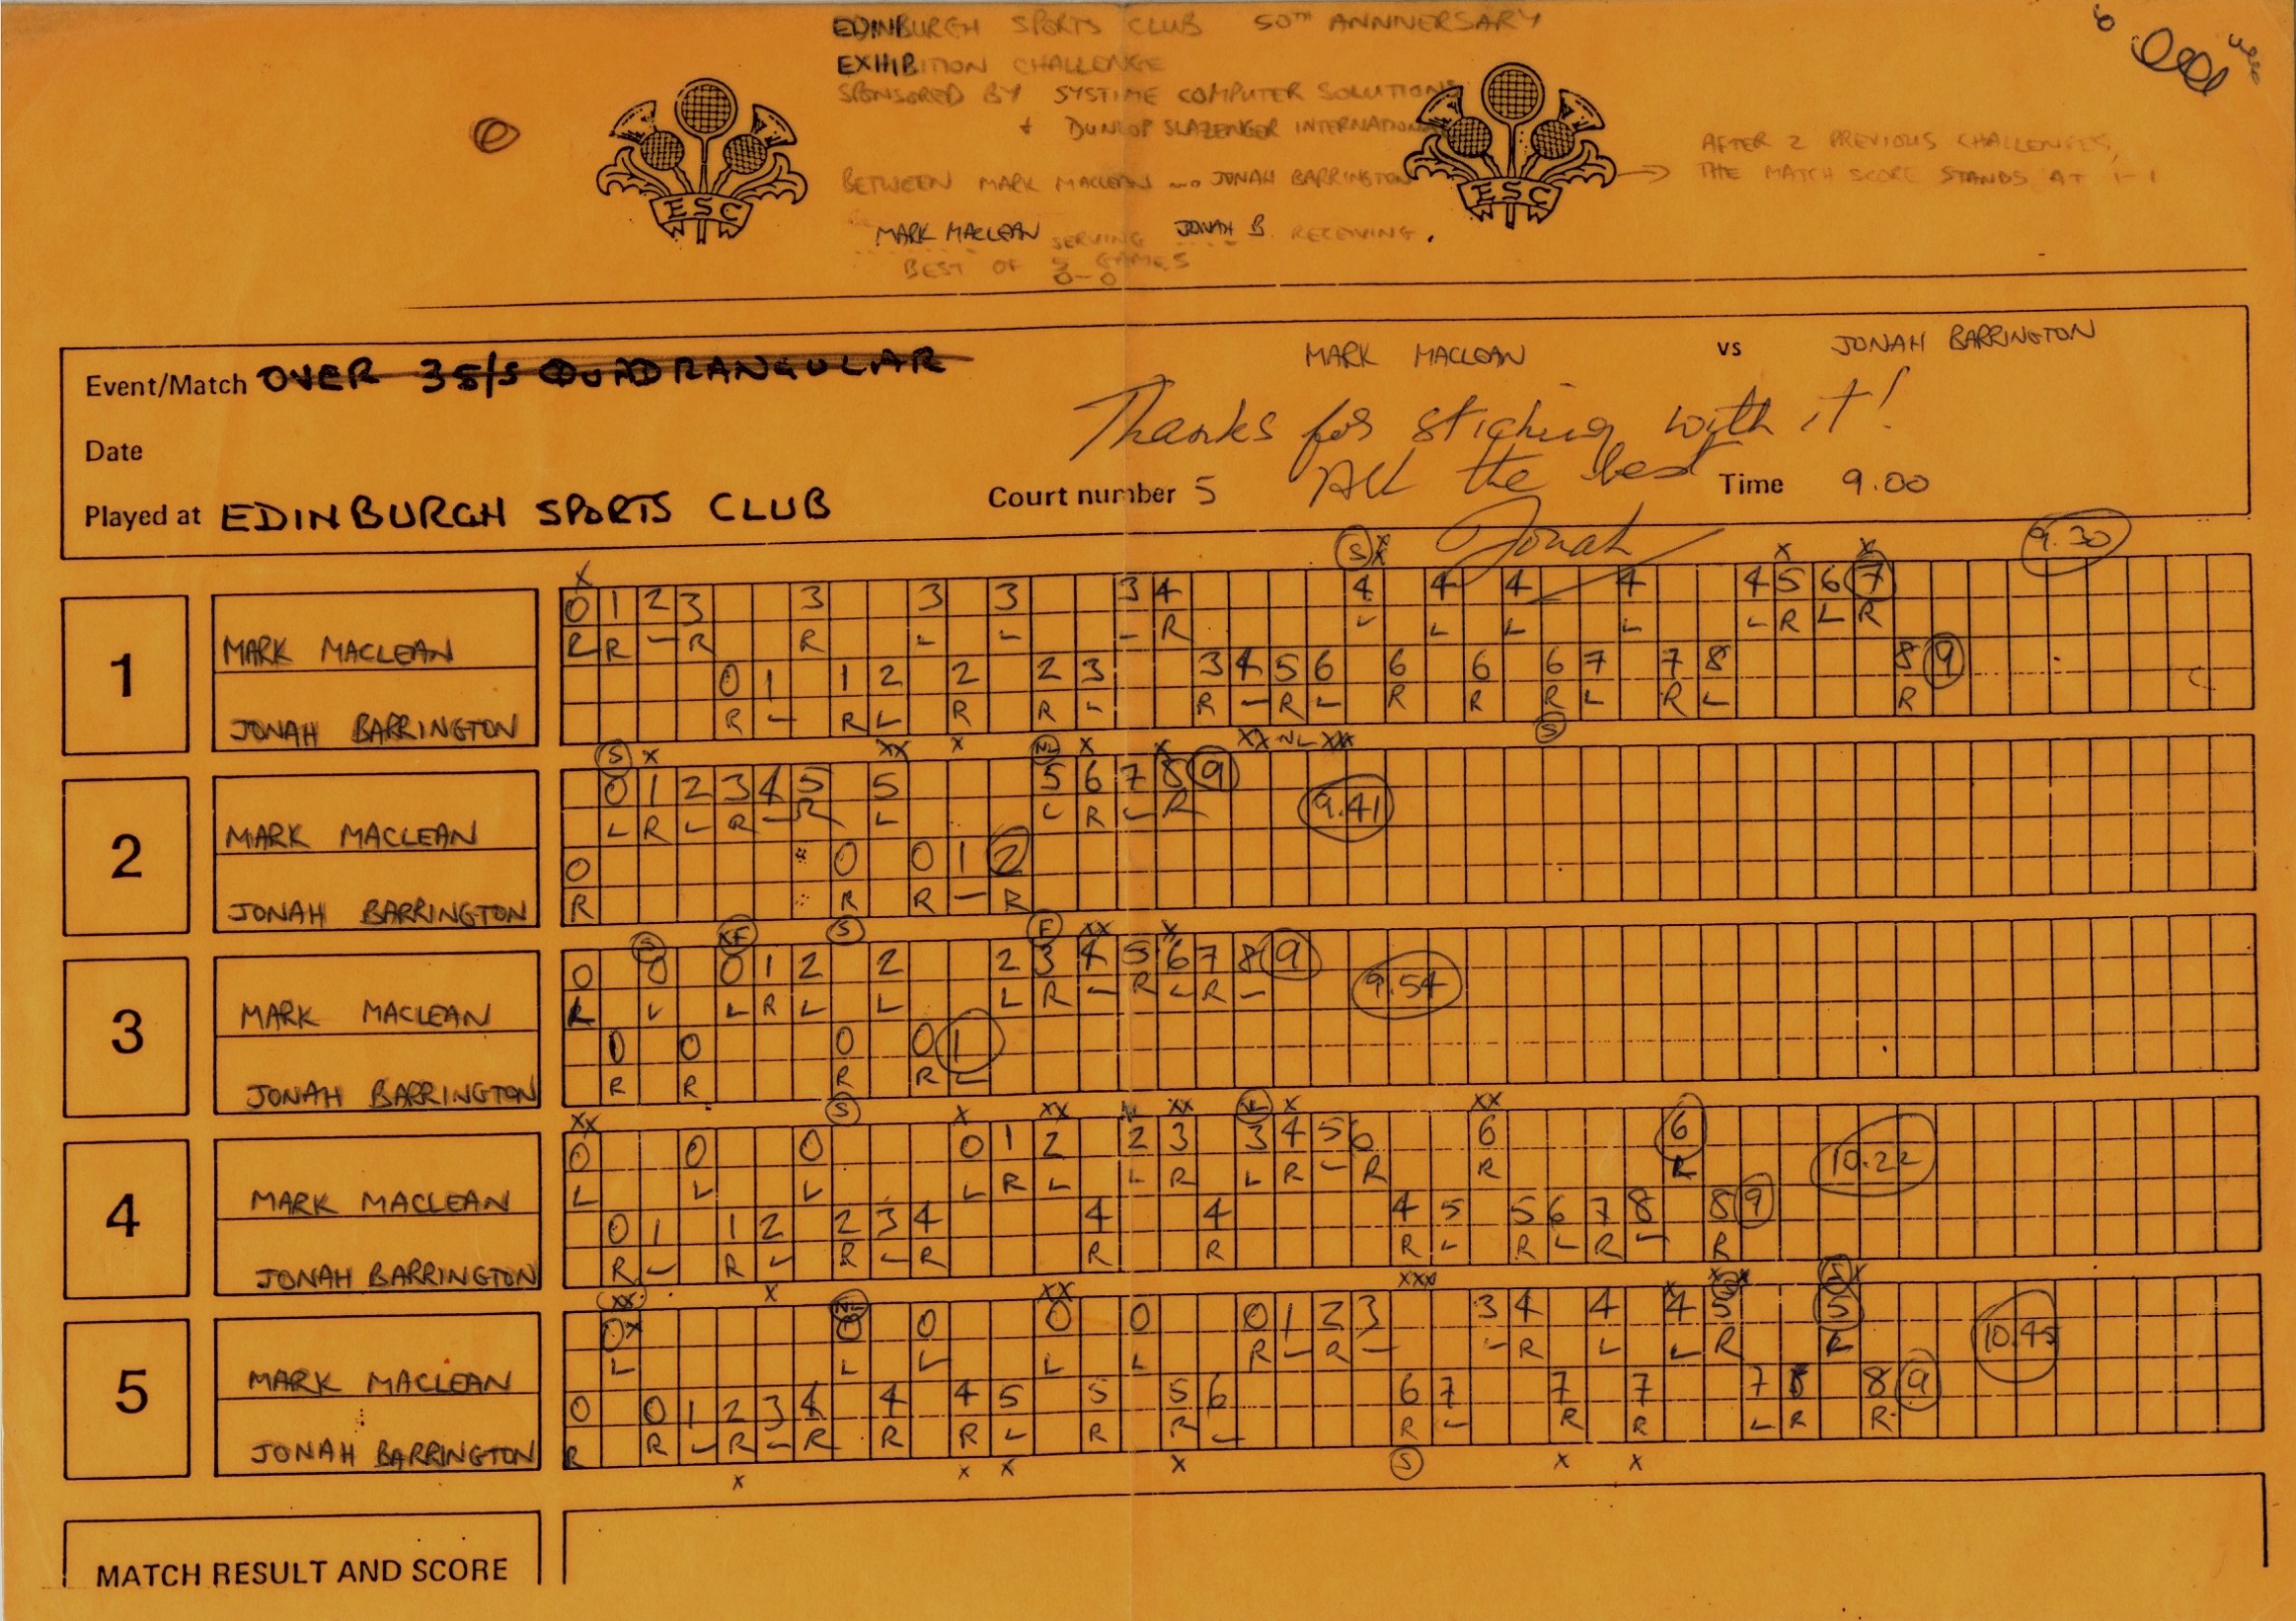 EDINBURGH SPORTS CLUB 50TH ANNIVERSARY
EXHIBITION CHALLENGE
SPONSORED BY SYSTIME COMPUTER SOLUTIONS
+ DUNLOP SLAZENGER INTERNATIONAL
BETWEEN MARK MACLEAN AND JONAH BARRINGTON
AFTER 2 PREVIOUS CHALLENGES,
THE MATCH SCORE STANDS AT 1-1
ESC
ESC
MARK MACLEAN SERVING JONAH B. RECEIVING.
BEST OF 5 GAMES
0-0
Event/Match OVER 35/S QUADRANGULAR
MARK MACLEAN vs JONAH BARRINGTON
Thanks for sticking with it!
All the best
Jonah
Date
Played at EDINBURGH SPORTS CLUB
Court number 5
Time 9.00
9.30
1
MARK MACLEAN
0 1 2 3 3 3 3 3 4 4 4 4 4 4 5 6 7
R R L R R L L L R L L L L L R L R
JONAH BARRINGTON
0 1 1 2 2 2 3 3 4 5 6 6 6 6 7 7 8 8 9
R L R L R R L R L R L R R R L R L R
2
MARK MACLEAN
0 1 2 3 4 5 5 5 6 7 8 9
L R L R L R L L R L R
9.41
JONAH BARRINGTON
0 0 0 1 2
R R R L R
3
MARK MACLEAN
0 0 0 1 2 2 2 3 4 5 6 7 8 9
L L L R L L L R L R L R L
9.54
JONAH BARRINGTON
0 0 0 0 1
R R R R L
4
MARK MACLEAN
0 0 0 0 1 2 2 3 3 4 5 6 6 6
L L L L R L L R L R L R R R
10.22
JONAH BARRINGTON
0 1 1 2 2 3 4 4 4 4 5 5 6 7 8 8 9
R L R L R L R R R R L R L R L R
5
MARK MACLEAN
0 0 0 0 0 0 1 2 3 3 4 4 4 5 5
L L L L L R L R L L R L L R R
10.45
JONAH BARRINGTON
0 0 1 2 3 4 4 4 5 5 5 6 6 7 7 7 7 8 8 9
R R L R L R R R L R R L R L R R L R R
MATCH RESULT AND SCORE